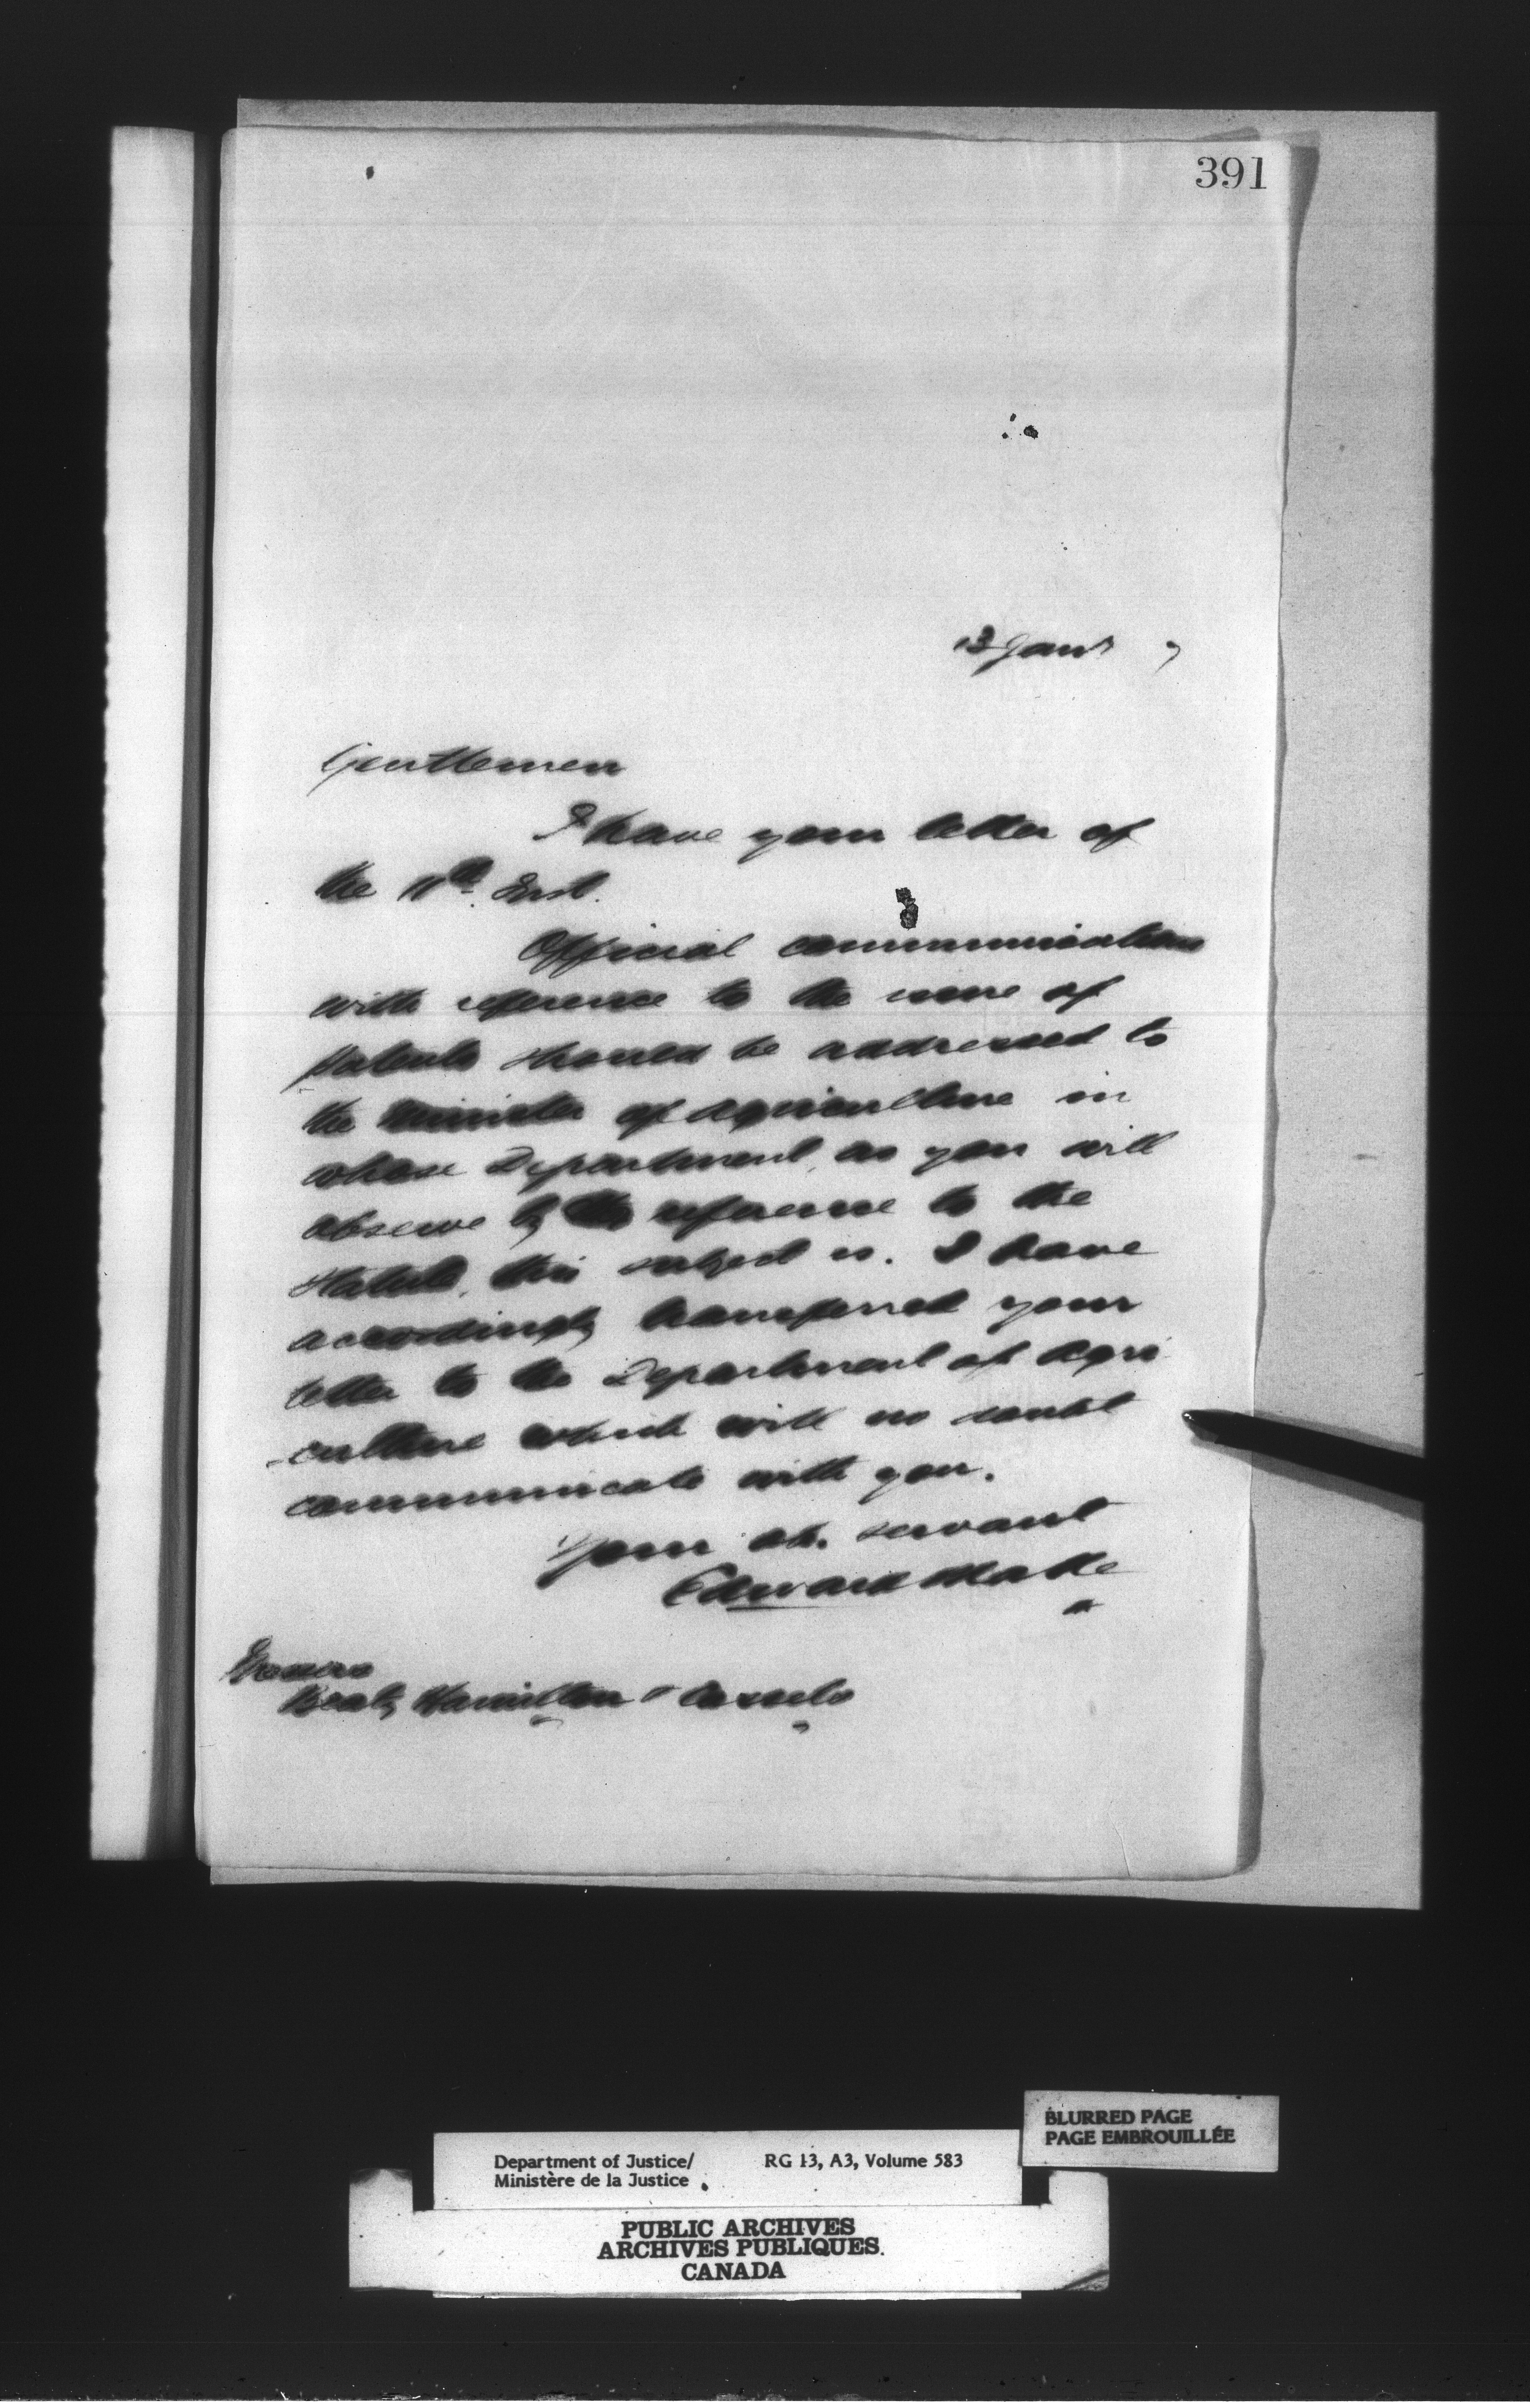 391
13 Jany 7
Gentlemen
I have your letter of
the 11th Inst.
Official communications
with reference to the issue of
patents should be addressed to
the Minister of Agriculture in
whose Department, as you will
observe by reference to the
Statute, this subject is. I have
accordingly transferred your
letter to the Department of Agri
-culture which will no doubt
communicate with you.
Your ob. servant
Edward Blake
Messrs
Beaty Hamilton & Cassels
BLURRED PAGE
PAGE EMBROUILLÉE
Department of Justice/ RG 13, A3, Volume 583
Ministère de la Justice
PUBLIC ARCHIVES
ARCHIVES PUBLIQUES
CANADA